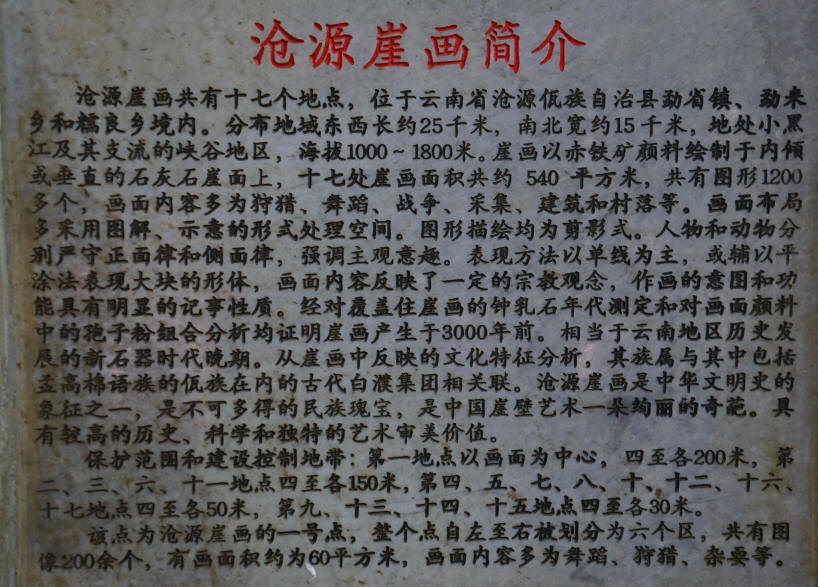 沧源崖画简介
沧源崖画共有十七个地点，位于云南省沧源佤族自治县勐省镇、勐来
乡和糯良乡境内。分布地域东西长约25千米，南北宽约15千米，地处小黑
江及其支流的峡谷地区，海拔1000~1800米。崖画以赤铁矿颜料绘制于内倾
或垂直的石灰石崖面上，十七处崖画面积共约 540 平方米，共有图形1200
多个，画面内容多为狩猎、舞蹈、战争、采集、建筑和村落等。画面布局
多采用图解、示意的形式处理空间。图形描绘均为剪影式。人物和动物分
别严守正面律和侧面律，强调主观意趣。表现方法以单线为主，或辅以平
涂法表现大块的形体，画面内容反映了一定的宗教观念，作画的意图和功
能具有明显的记事性质。经对覆盖住崖画的钟乳石年代测定和对画面颜料
中的孢子粉组合分析均证明崖画产生于3000年前。相当于云南地区历史发
展的新石器时代晚期。从崖画中反映的文化特征分析，其族属与其中包括
孟高棉语族的佤族在内的古代白濮集团相关联。沧源崖画是中华文明史的
象征之一，是不可多得的民族瑰宝，是中国崖壁艺术一朵绚丽的奇葩。具
有较高的历史、科学和独特的艺术审美价值。
保护范围和建设控制地带：第一地点以画面为中心，四至各200米，第
二、三、六、十一地点四至各150米，第四、五、七、八、十、十二、十六、
十七地点四至各50米，第九、十三、十四、十五地点四至各30米。
该点为沧源崖画的一号点，整个点自左至右被划分为六个区，共有图
像200余个，有画面积约为60平方米，画面内容多为舞蹈、狩猎、杂耍等。